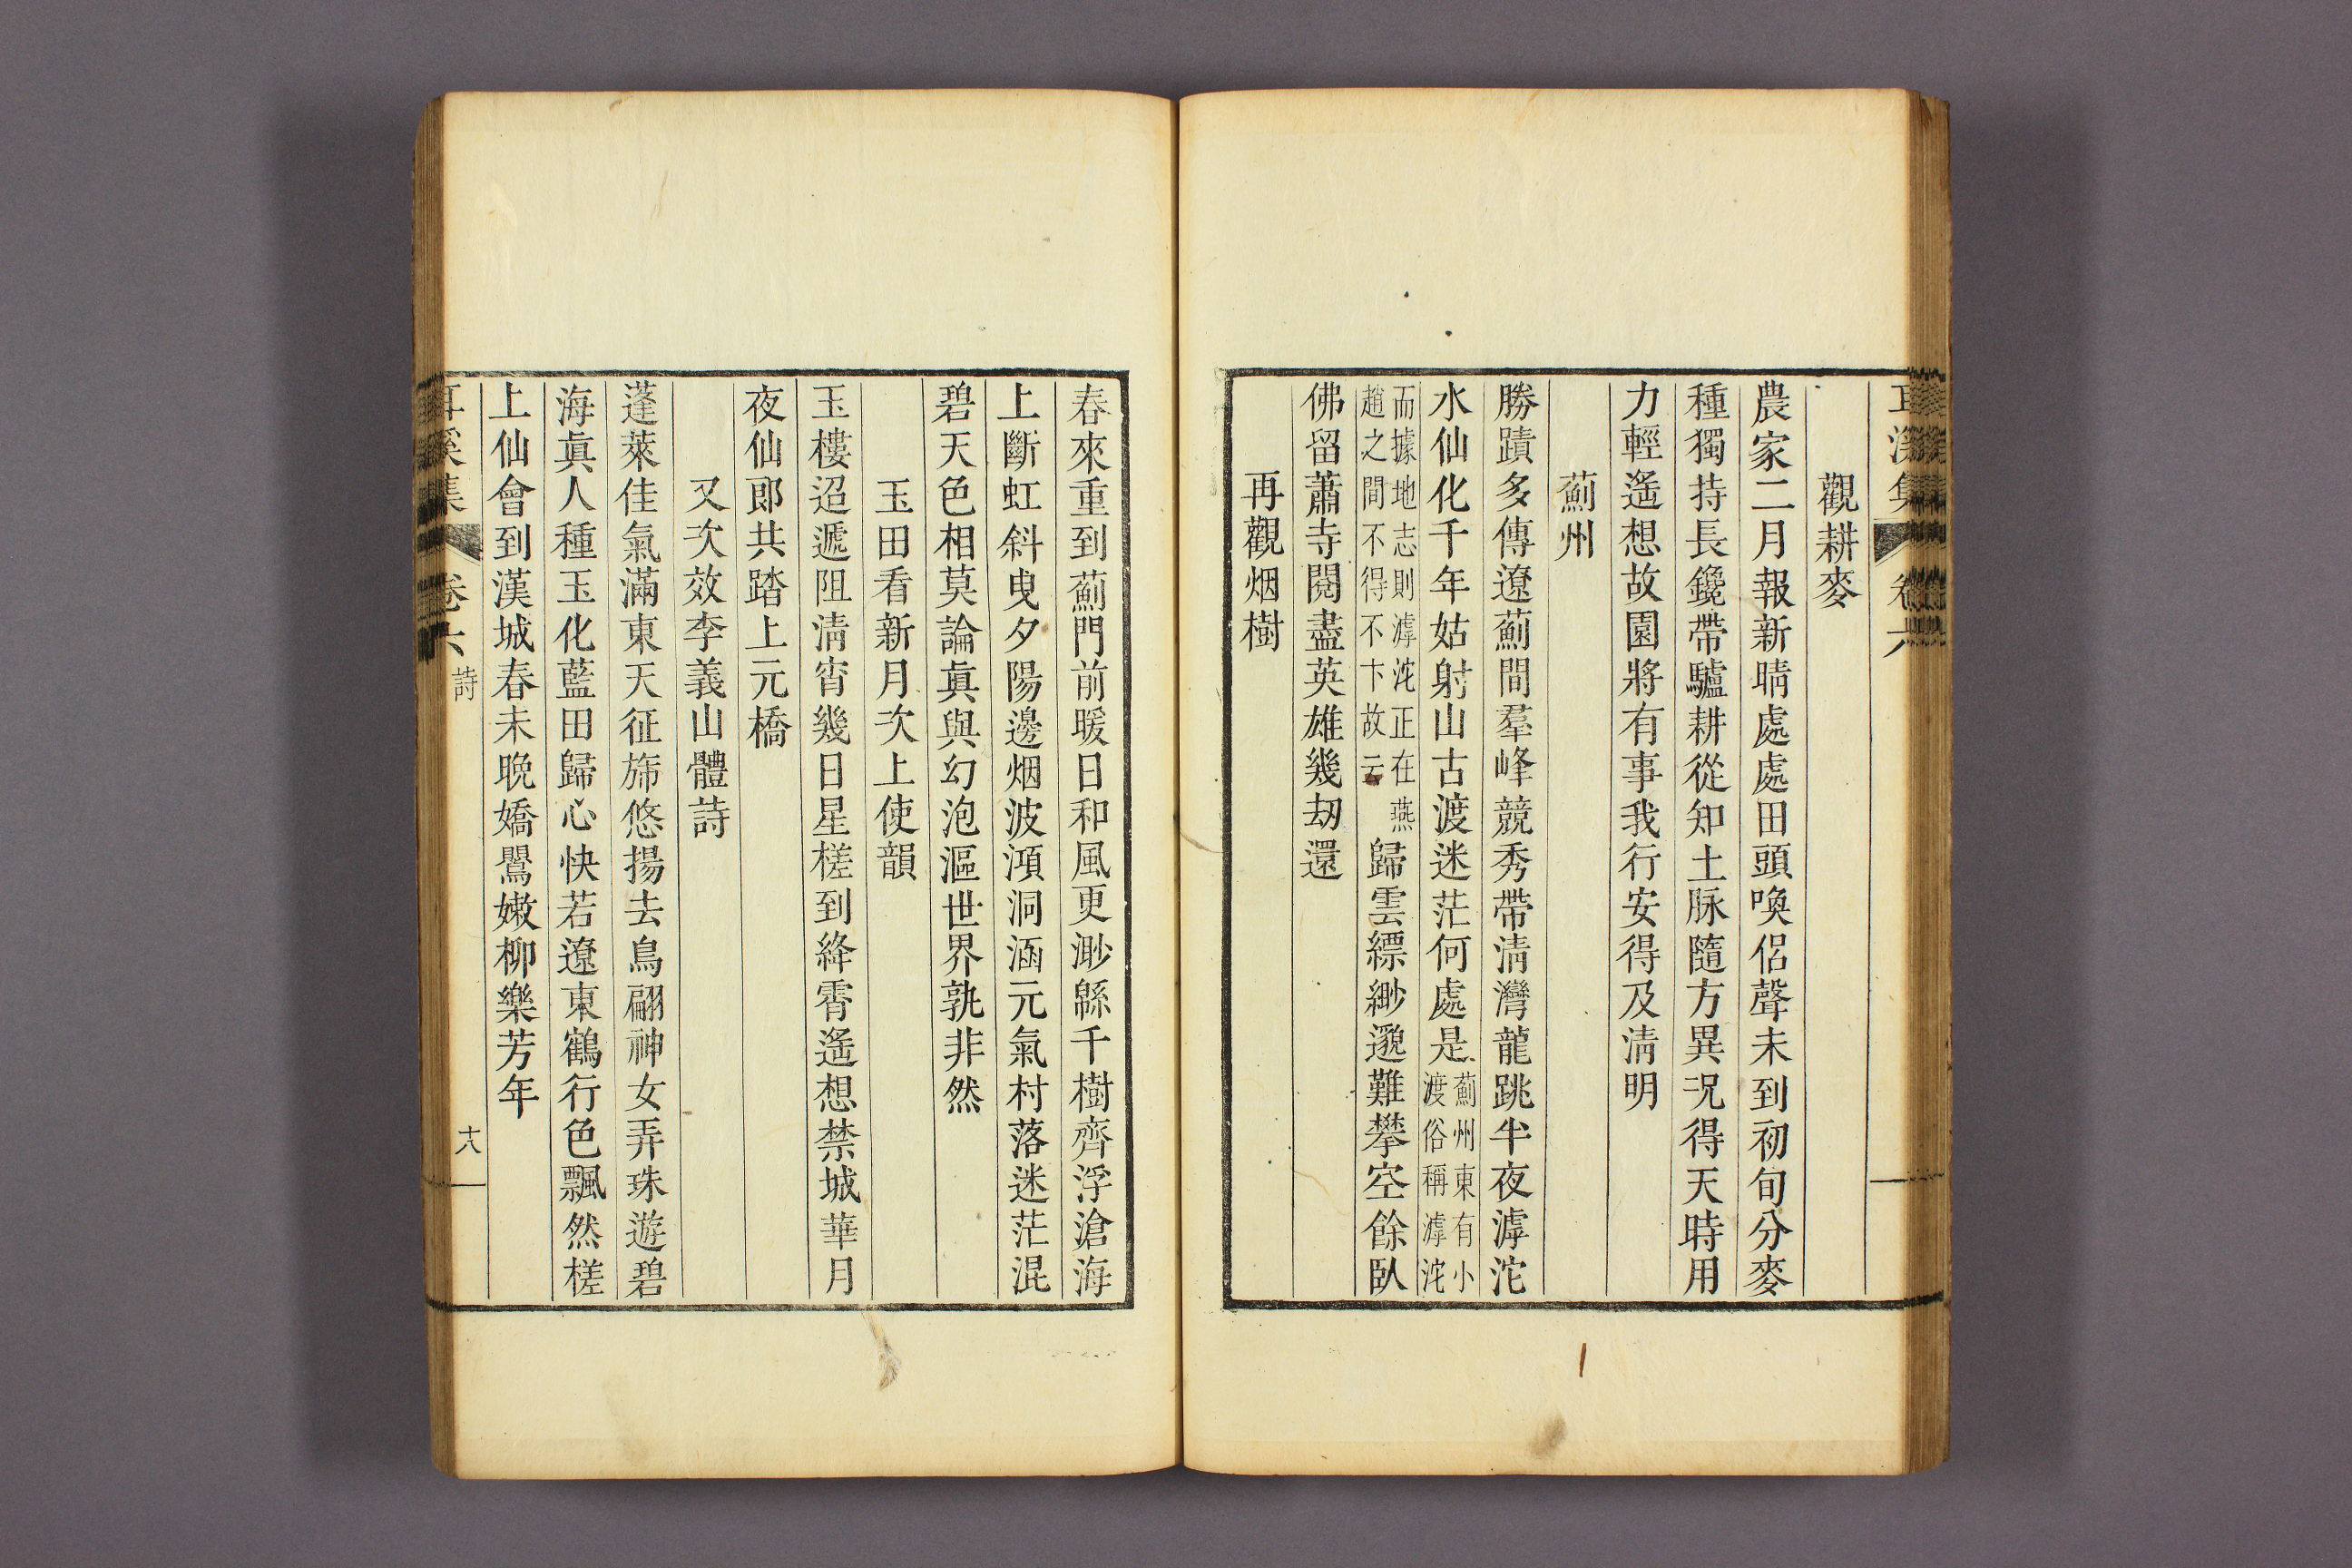 耳溪集 卷六
觀耕麥
農家二月報新晴處處田頭喚侶聲未到初旬分麥
種獨持長鑱帶驢耕從知土脉隨方異况得天時用
力輕遙想故園將有事我行安得及淸明
薊州
勝蹟多傳遼薊間羣峰競秀帶淸灣龍跳半夜滹沱
水仙化千年姑射山古渡迷茫何處是薊州東有小
渡俗稱滹沱
而據地志則滹沱正在燕
趙之間不得不卞故云歸雲縹緲邈難攀空餘臥
佛留蕭寺閱盡英雄幾刼還
再觀烟樹
春來重到薊門前暖日和風更渺緜千樹齊浮滄海
上斷虹斜曳夕陽邊烟波澒洞涵元氣村落迷茫混
碧天色相莫論眞與幻泡漚世界孰非然
玉田看新月次上使韻
玉樓迢遞阻淸宵幾日星槎到絳霄遙想禁城華月
夜仙郞共踏上元橋
又次效李義山體詩
蓬萊佳氣滿東天征斾悠揚去鳥翩神女弄珠遊碧
海眞人種玉化藍田歸心快若遼東鶴行色飄然槎
上仙會到漢城春未晩嬌鸎嫩柳樂芳年
耳溪集 卷六 詩 十八